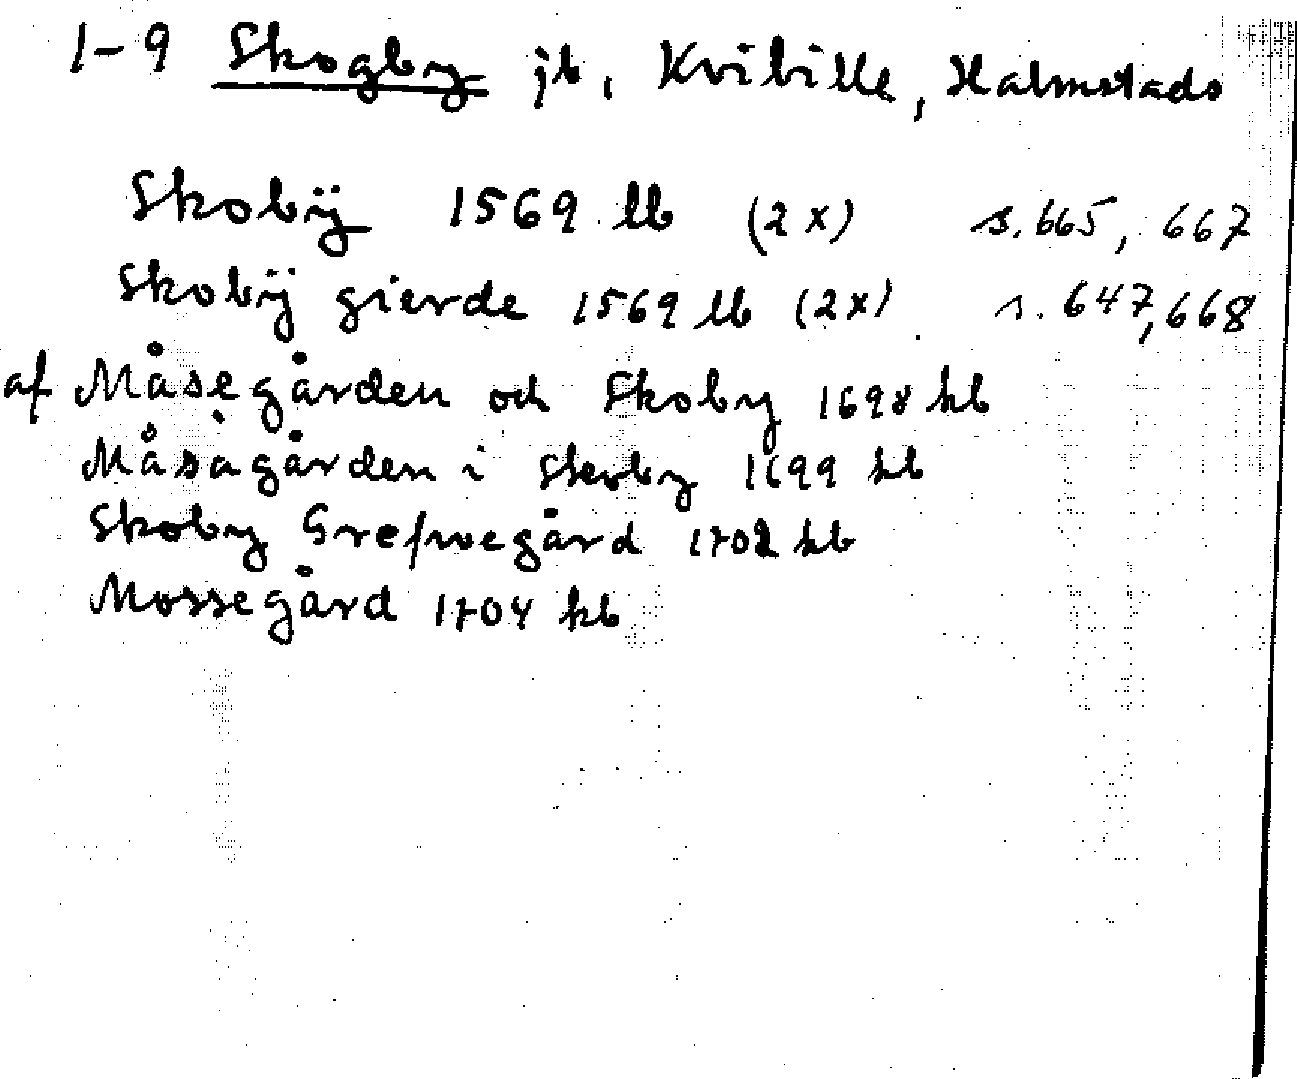 1-9 Skogby jb, Kvibille, Halmstads
Skobÿ 1569 lb (2x) s. 665, 667
Skobÿ gierde 1569 lb (2x) s. 647, 668
af Måsegården och Skoby 1698 kb
Måsagården i Skoby 1699 kb
Skoby Grefwegård 1702 kb
Mossegård 1704 kb